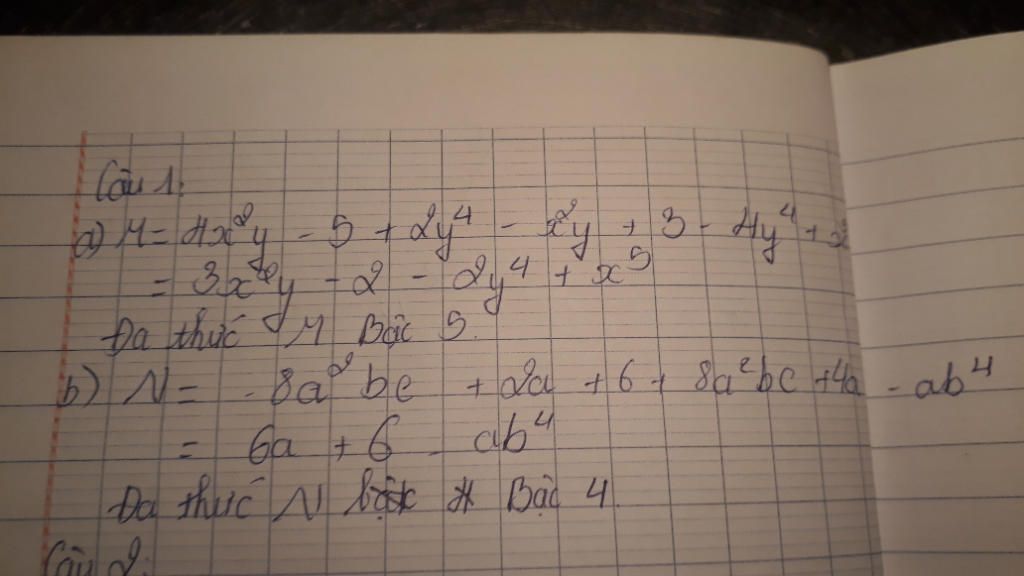 Câu 1:
a) M = 4x²y - 5 + 2y⁴ - x²y + 3 - 4y⁴ +
= 3x²y - 2 - 2y⁴ + x⁵
Đa thức M Bậc 5.
b) N = - 8a²bc + 2a + 6 + 8a²bc + 4a - ab⁴
= 6a + 6 - ab⁴
Đa thức N Bậc 4.
Câu 2: